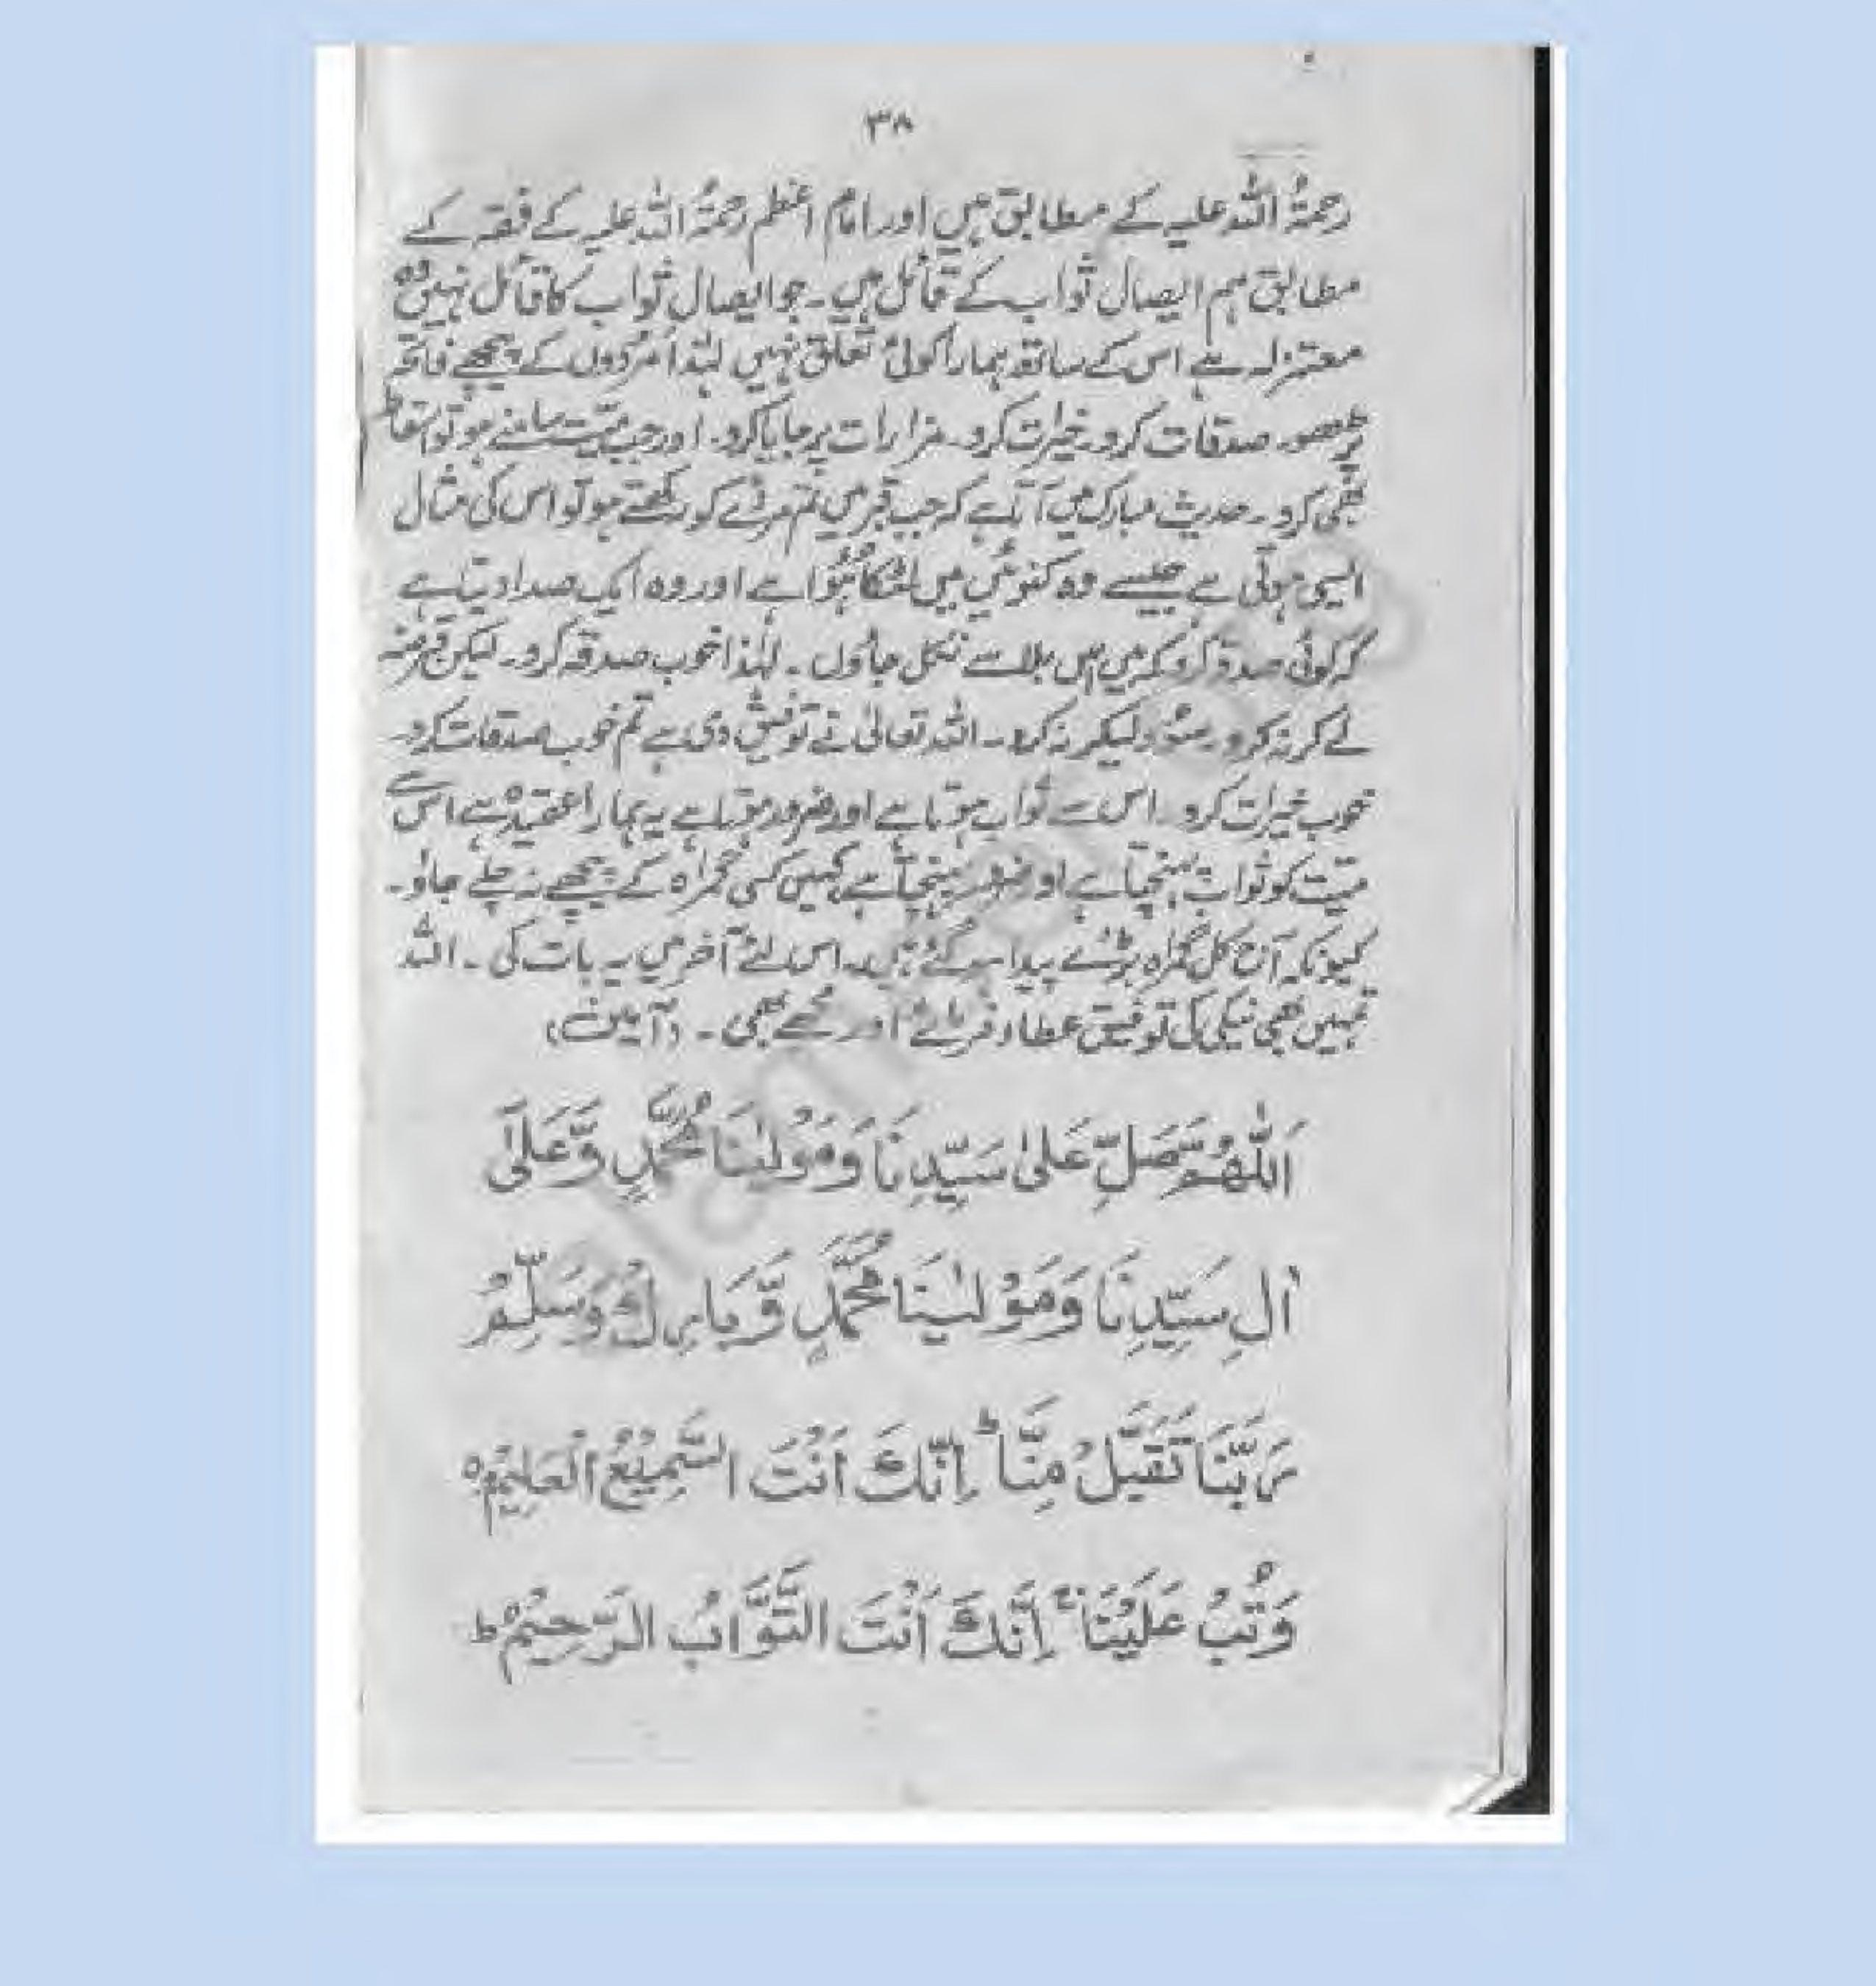 ۳۸
رحمۃُ اللہ علیہ کے مطابق ہیں اور امام اعظم رحمۃُ اللہ علیہ کے فقہ کے
مطابق ہم ایصالِ ثواب کے قائل ہیں۔ جو ایصال ثواب کا قائل نہیں وہ
معتزلہ ہے اس کے ساتھ ہمارا کوئی تعلق نہیں لہٰذا مُردوں کے پیچھے فاتحہ
پڑھو۔ صدقات کرو۔ خیرات کرو۔ مزارات پر جایا کرو۔ اور جب میّت سامنے ہو تو اسقاط
بھی کرو۔ حدیث مبارک میں آتا ہے کہ جب قبر میں تم مردے کو رکھتے ہو تو اس کی مثال
ایسی ہوتی ہے جیسے وہ کنوئیں میں لٹکا ہُوا ہے اور وہ ایک صدا دیتا ہے
کہ کوئی صدقہ کرو کہ میں اس بلا سے نکل جاؤں۔ لہٰذا خوب صدقہ کرو۔ لیکن قرضہ
لے کر نہ کرو۔ سُود لیکر نہ کرو۔ اللہ تعالیٰ نے توفیق دی ہے تم خوب صدقات کرو۔
خوب خیرات کرو۔ اس سے ثواب ہوتا ہے اور ضرور ہوتا ہے یہ ہمارا عقیدہ ہے اس سے
میّت کو ثواب پہنچتا ہے اور ضرور پہنچتا ہے کہیں کسی گمراہ کے پیچھے نہ چلے جاؤ۔
کیونکہ آج کل گمراہ بڑے پیدا ہو گئے ہیں۔ اس لئے آخر میں یہ بات کی۔ اللہ
تمہیں بھی نیکی کی توفیق عطاء فرمائے اور مجھے بھی۔ (آمین)
اَللّٰھُمَّ صَلِّ عَلیٰ سَیِّدِنَا وَمَوْلٰینَا مُحَمَّدٍ وَّعَلیٰٓ
اٰلِ سَیِّدِنَا وَمَوْلٰینَا مُحَمَّدٍ وَّبَارِكْ وَسَلِّمْ
رَبَّنَا تَقَبَّلْ مِنَّا ؕ اِنَّكَ اَنْتَ السَّمِیْعُ الْعَلِیْمُ ہ
وَتُبْ عَلَیْنَا ۚ اِنَّكَ اَنْتَ التَّوَّابُ الرَّحِیْمُ ط